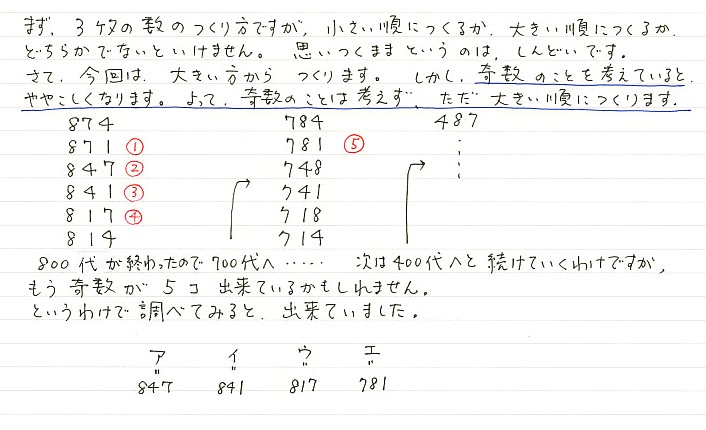 まず、3ケタの数のつくり方ですが、小さい順につくるか、大きい順につくるか、
どちらかでないといけません。 思いつくままというのは、しんどいです。
さて、今回は、大きい方から つくります。 しかし、奇数のことを考えていると、
ややこしくなります。よって、奇数のことは考えず、ただ大きい順につくります。
874 784 487
871 ① 781 ⑤ ⋮
847 ② 748
841 ③ 741
817 ④ 718
814 714
800代が終わったので700代へ…… 次は400代へと続けていくわけですが、
もう奇数が5コ出来ているかもしれません。
というわけで調べてみると、出来ていました。
ア イ ウ エ
= = = =
847 841 817 781